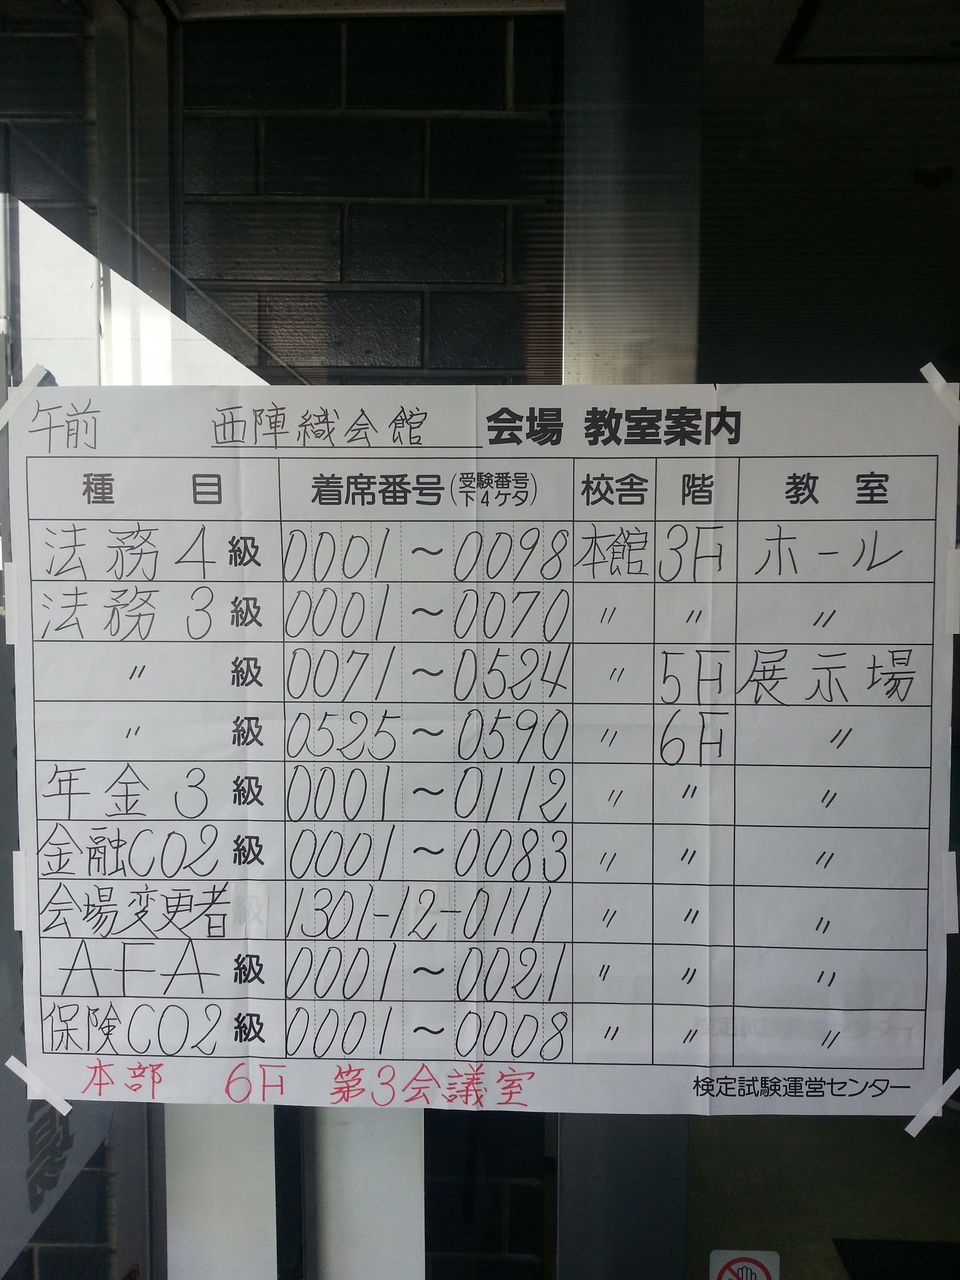 午前 西陣織会館 会場 教室案内
種目 着席番号(受験番号下4ケタ) 校舎 階 教室
法務4級 0001〜0098 本館 3F ホール
法務3級 0001〜0070 〃 〃 〃
〃 級 0071〜0524 〃 5F 展示場
〃 級 0525〜0590 〃 6F 〃
年金3級 0001〜0112 〃 〃 〃
金融CO2級 0001〜0083 〃 〃 〃
会場変更者 1301-12-0111 〃 〃 〃
AFA級 0001〜0021 〃 〃 〃
保険CO2級 0001〜0008 〃 〃 〃
本部 6F 第3会議室 検定試験運営センター